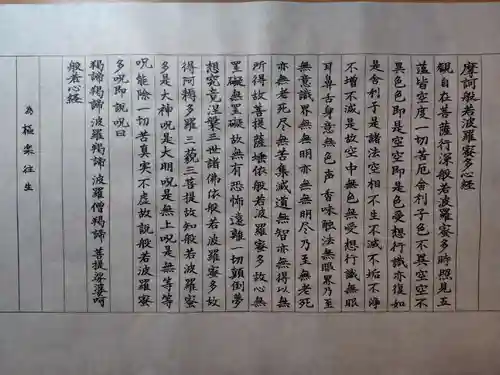 摩訶般若波羅蜜多心経
観自在菩薩行深般若波羅蜜多時照見五
蘊皆空度一切苦厄舎利子色不異空空不
異色色即是空空即是色受想行識亦復如
是舎利子是諸法空相不生不滅不垢不浄
不増不減是故空中無色無受想行識無眼
耳鼻舌身意無色声香味触法無眼界乃至
無意識界無無明亦無無明尽乃至無老死
亦無老死尽無苦集滅道無智亦無得以無
所得故菩提薩埵依般若波羅蜜多故心無
罣礙無罣礙故無有恐怖遠離一切顛倒夢
想究竟涅槃三世諸佛依般若波羅蜜多故
得阿耨多羅三藐三菩提故知般若波羅蜜
多是大神呪是大明呪是無上呪是無等等
呪能除一切苦真実不虚故説般若波羅蜜
多呪即説呪曰
羯諦羯諦波羅羯諦波羅僧羯諦菩提娑婆訶
般若心経
為極楽往生